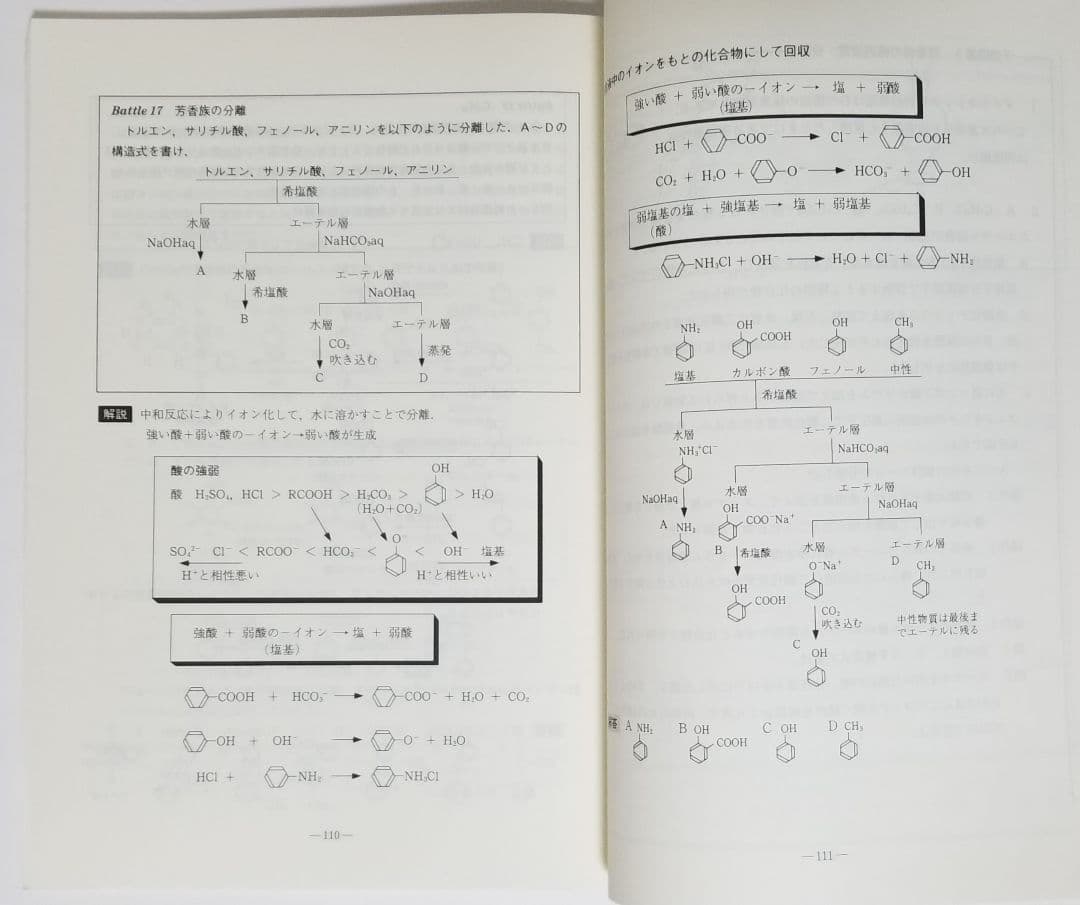 Battle 17 芳香族の分離
トルエン、サリチル酸、フェノール、アニリンを以下のように分離した. A～Dの
構造式を書け、
トルエン、サリチル酸、フェノール、アニリン
希塩酸
水層 エーテル層
NaOHaq NaHCO₃aq
A 水層 エーテル層
希塩酸 NaOHaq
B 水層 エーテル層
CO₂
吹き込む 蒸発
C D
解説 中和反応によりイオン化して、水に溶かすことで分離.
強い酸＋弱い酸の－イオン→弱い酸が生成
酸の強弱
OH
酸 H₂SO₄, HCl > RCOOH > H₂CO₃ > > H₂O
(H₂O+CO₂)
O⁻
SO₄²⁻ Cl⁻ < RCOO⁻ < HCO₃⁻ < < OH⁻ 塩基
H⁺と相性悪い H⁺と相性いい
強酸 ＋ 弱酸の－イオン → 塩 ＋ 弱酸
(塩基)
-COOH + HCO₃⁻ → -COO⁻ + H₂O + CO₂
-OH + OH⁻ → -O⁻ + H₂O
HCl + -NH₂ → -NH₃Cl
—110—
中のイオンをもとの化合物にして回収
強い酸 ＋ 弱い酸の－イオン → 塩 ＋ 弱酸
(塩基)
HCl + -COO⁻ → Cl⁻ + -COOH
CO₂ + H₂O + -O⁻ → HCO₃⁻ + -OH
弱塩基の塩 ＋ 強塩基 → 塩 ＋ 弱塩基
(酸)
-NH₃Cl + OH⁻ → H₂O + Cl⁻ + -NH₂
NH₂ OH COOH OH CH₃
塩基 カルボン酸 フェノール 中性
希塩酸
水層 エーテル層
NH₃⁺Cl⁻ NaHCO₃aq
水層 エーテル層
NaOHaq OH COO⁻Na⁺ NaOHaq
A NH₂
B 希塩酸 水層 エーテル層
O⁻Na⁺ D CH₃
OH COOH
CO₂
吹き込む
中性物質は最後ま
でエーテルに残る
C
OH
A NH₂ B OH COOH C OH D CH₃
—111—